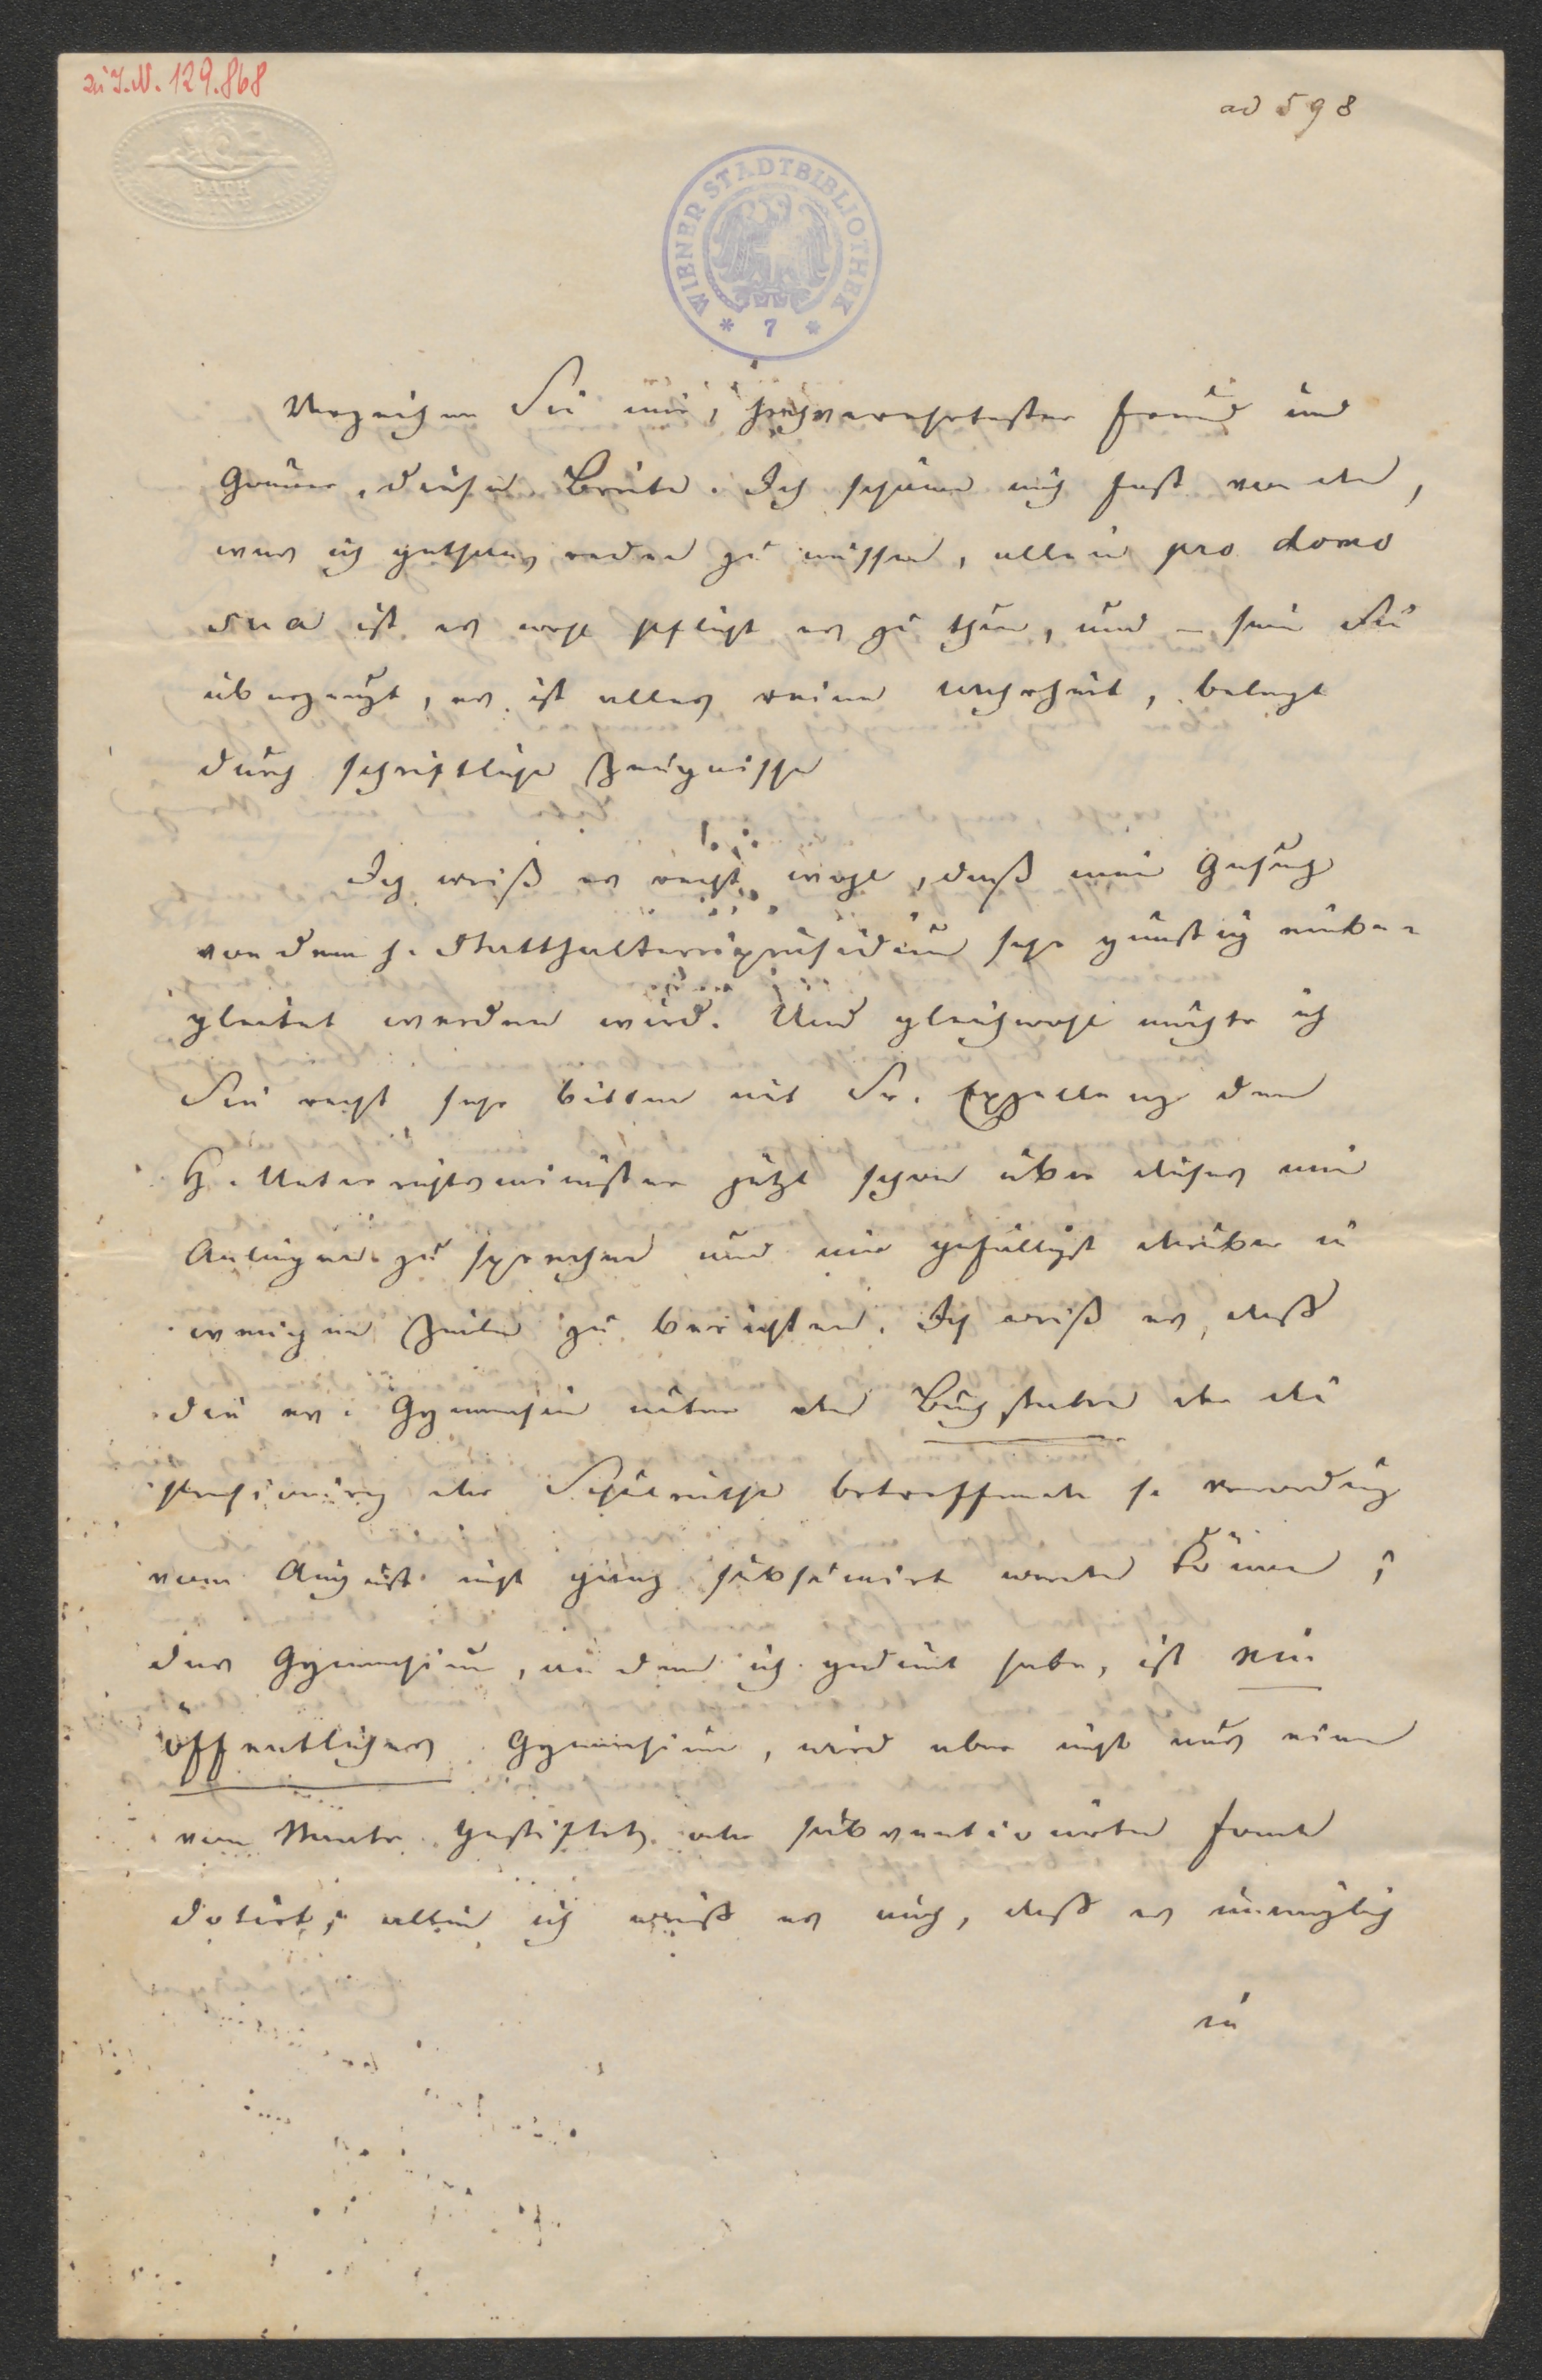 zu I.N. 129.868
ad 598
BATH
WIENER STADTBIBLIOTHEK
* 7 *
Verzeihen Sie mir, hochverehrtester Freund und
Gönner, diese Breite. Ich schäme mich fast von dem,
was ich gethan, reden zu müssen, allein pro domo
sua ist es wohl Pflicht es zu thun, und – sein Sie
überzeugt, es ist alles reine Wahrheit, belegt
durch schriftliche Zeugnisse
Ich weiß es recht wohl, daß mein Gesuch
von dem h. Statthaltereipräsidium sehr günstig einbe-
gleitet werden wird. Und gleichwohl möchte ich
Sie recht sehr bitten mit Sr. Exzellenz dem
H. Unterrichtsminister jetzt schon über dieses mein
Anliegen zu sprechen und mir gefälligst darüber in
wenigen Zeilen zu berichten. Ich weiß es, daß
die ev. Gymnasien unter den Buchstaben der die
Pensionirung der Schulräthe betreffende h. Verordnung
vom August nicht ganz subsumirt werden können;
das Gymnasium, an dem ich gedient habe, ist ein
öffentliches Gymnasium, wird aber nicht aus einem
vom Staate gestifteten oder subventionirten Fonde
dotirt; allein ich weiß es auch, daß es unmöglich
in